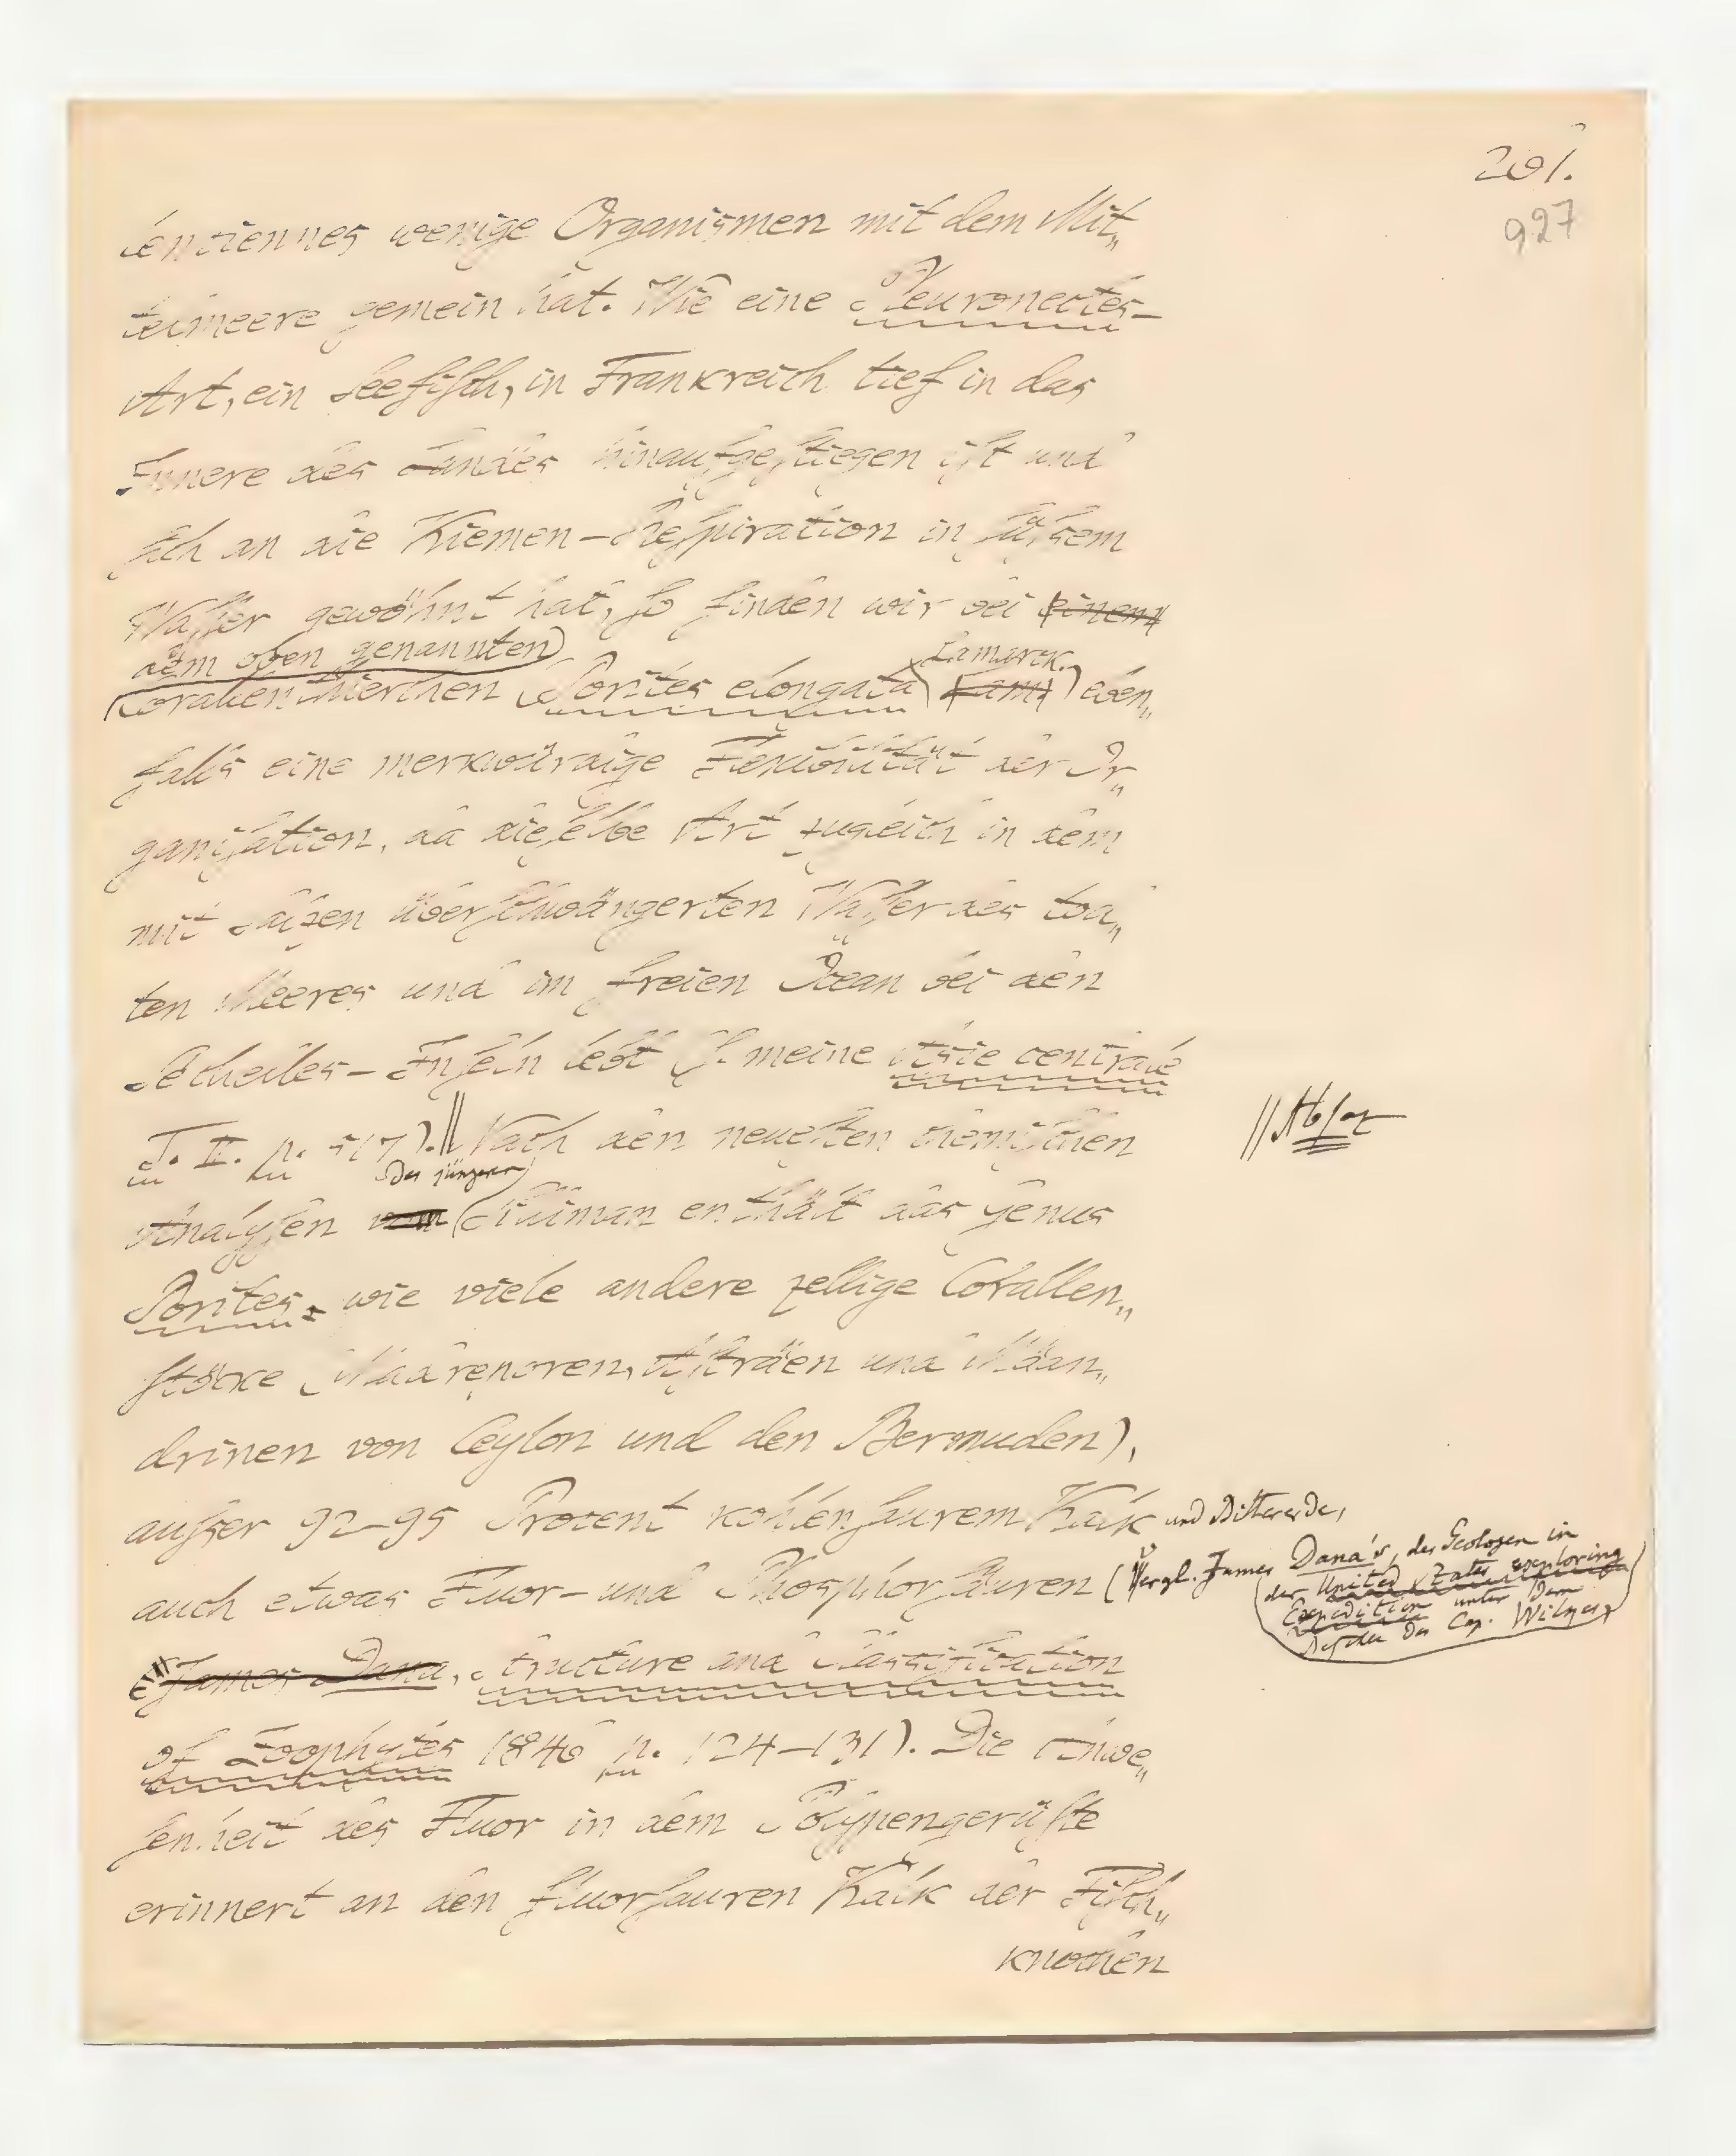 201.
927
lenciennes wenige Organismen mit dem Mit„
telmeere gemein hat. Wie eine Pleuronectes-
Art, ein Seefisch, in Frankreich tief in das
Innere des Landes hinaufgestiegen ist und
sich an die Kiemen-Respiration in süßem
Wasser gewöhnt hat, so finden wir bei einem
dem oben genannten Lamarck.
Corallenthierchen (Porites elongata) (Lam.) eben„
falls eine merkwürdige Flexibilität der Or„
ganisation, da dieselbe Art zugleich in dem
mit Salzen überschwängerten Wasser des tod„
ten Meeres und im freien Ocean bei den
Sechelles-Inseln lebt (s. meine Asie centrale
T. II. p. 517). || Nach den neuesten chemischen
|| Absaz
der jüngern
Analysen vom Silliman enthält das Genus
Porites, wie viele andere zellige Corallen„
stöcke (Madreporen, Asträen und Mäan„
drinen von Ceylon und den Bermuden),
außer 92-95 Procent kohlensaurem Kalk und Bittererde,
auch etwas Fluor- und Phosphorsäuren (Vergl. James Dana's, des Geologen in
der United States exploring
Expedition unter dem
Befehle des Cap. Wilkes,
(James Dana, Structure and Classification
of Zoophytes 1846 p. 124-131). Die Anwe„
senheit des Fluor in dem Polypengerüste
erinnert an den fluorsauren Kalk der Fisch„
knochen